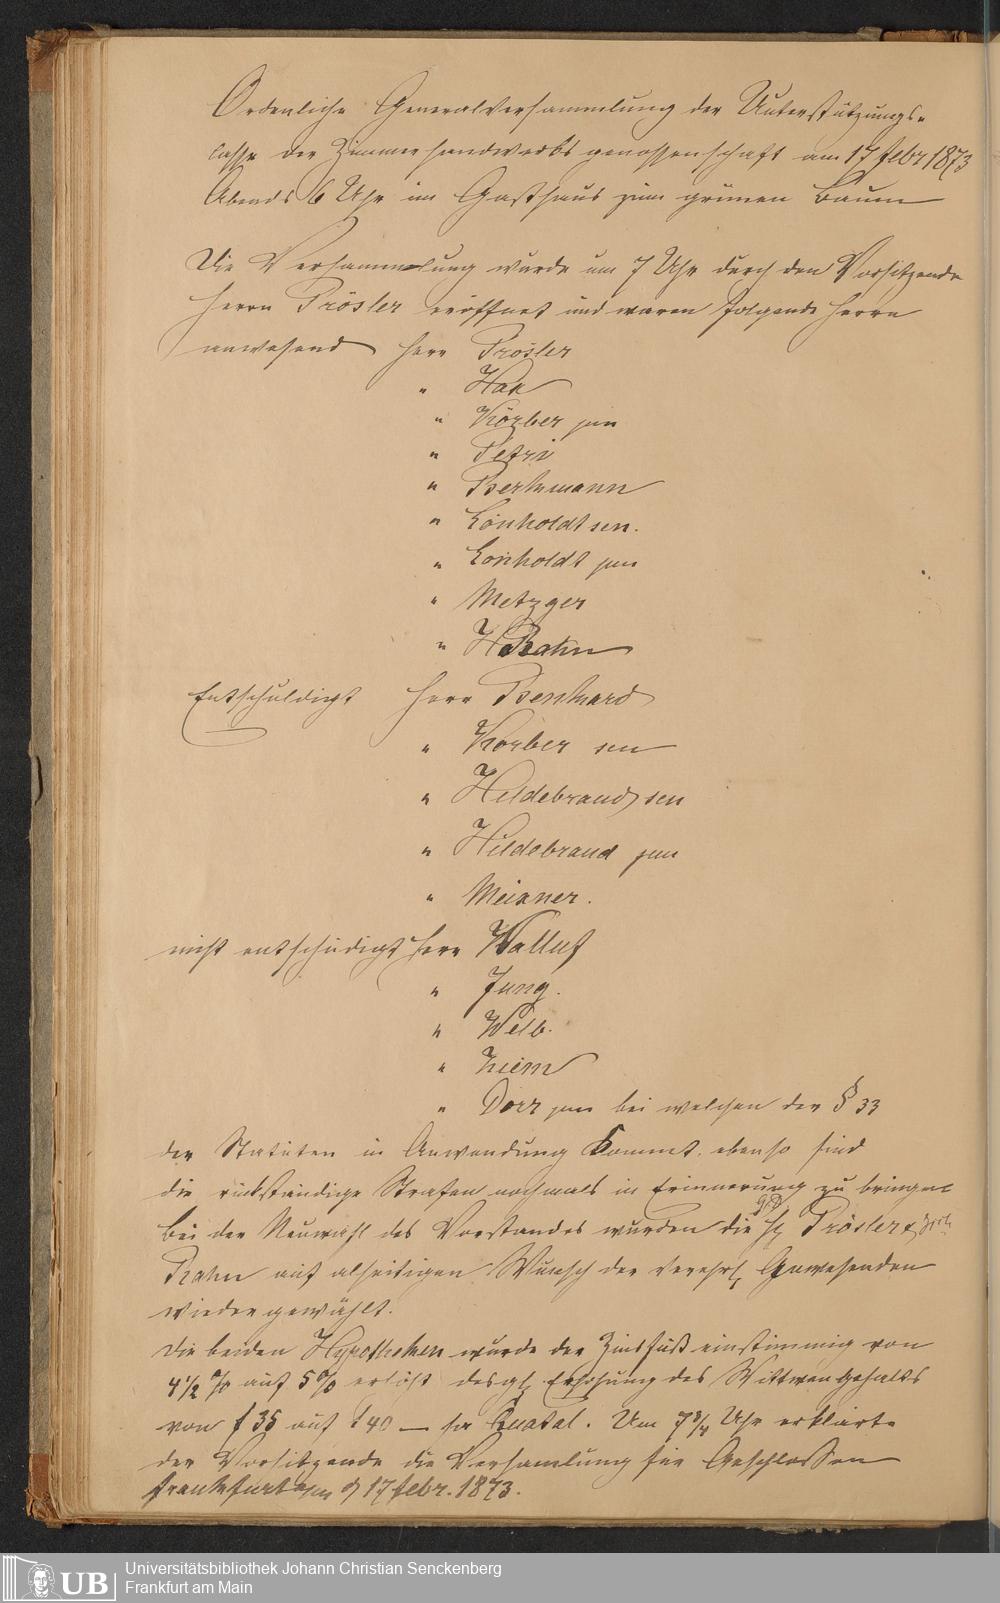 Ordenliche Generalversammlung der Unterstützungs-
casse der Zimmerhandwerksgenossenschaft am 17 Febr 1873
Abends 6 Uhr im Gasthaus zum grünen Baum
Die Versammlung wurde um 7 Uhr durch den Vorsitzende
Herrn Prösler eröffnet und waren folgende Herrn
anwesend Herr Prösler
" Hak
" Körber jun
" Petri
" Berkmann
" Lönholdt sen.
" Lönholdt jun
" Metzger
" H Rahn
Entschuldigt Herr Bernhard
" Körber sen
" Hildebrand sen
" Hildebrand jun
" Meixner.
nicht entschudigt Herr Walluf
" Jung.
" Welb.
" Dörr jun bei welchen der § 33
der Statuten in Anwendung kommt. ebenso sind
die rückständige Strafen nochmals in Erinnerung zu bringen
bei der Neuwahl des Vorstandes wurden die H Prösler &
Rahn auf alseitigen Wunsch der verehrl Anwesenden
wieder gewählt.
Die beiden Hypotheken wurde der Zinsfuß einstimmig von
4½ % auf 5 % erhöht desgl Erhöhung des Wittwengehalts
von f 35 auf f 40 — per Quatal. Um 7¾ Uhr erklärte
der Vorsitzende die Versamlung für Geschlossen
Frankfurt a/m d 17 Febr. 1873.
UB
Universitätsbibliothek Johann Christian Senckenberg
Frankfurt am Main